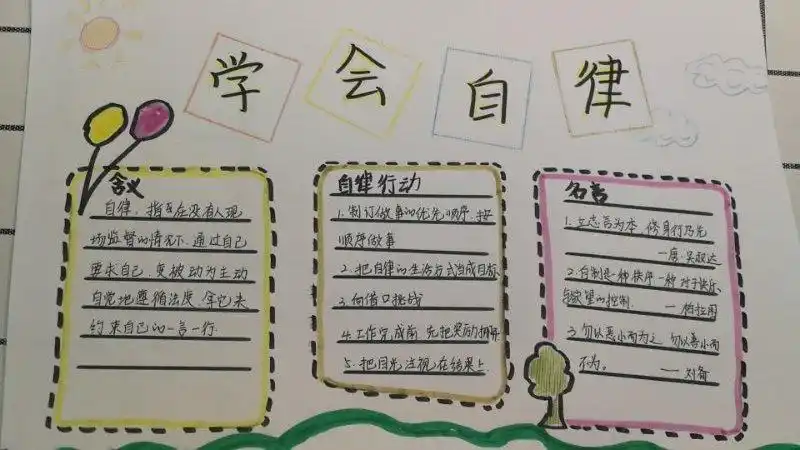 学会自律
含义
自律，指在没有人现
场监督的情况下，通过自己
要求自己，变被动为主动
自觉地遵循法度，拿它来
约束自己的一言一行.
自律行动
1.制订做事的优先顺序，按
顺序做事
2.把自律的生活方式当成目标
3.向借口挑战
4.工作完成前，先把奖励挪开
5.把目光注视在结果上
名言
1.立志言为本，修身行乃先
—唐·吴叔达
2.自制是一种秩序一种对于快乐
与欲望的控制. —柏拉图
3.勿以恶小而为之，勿以善小而
不为。 — 刘备